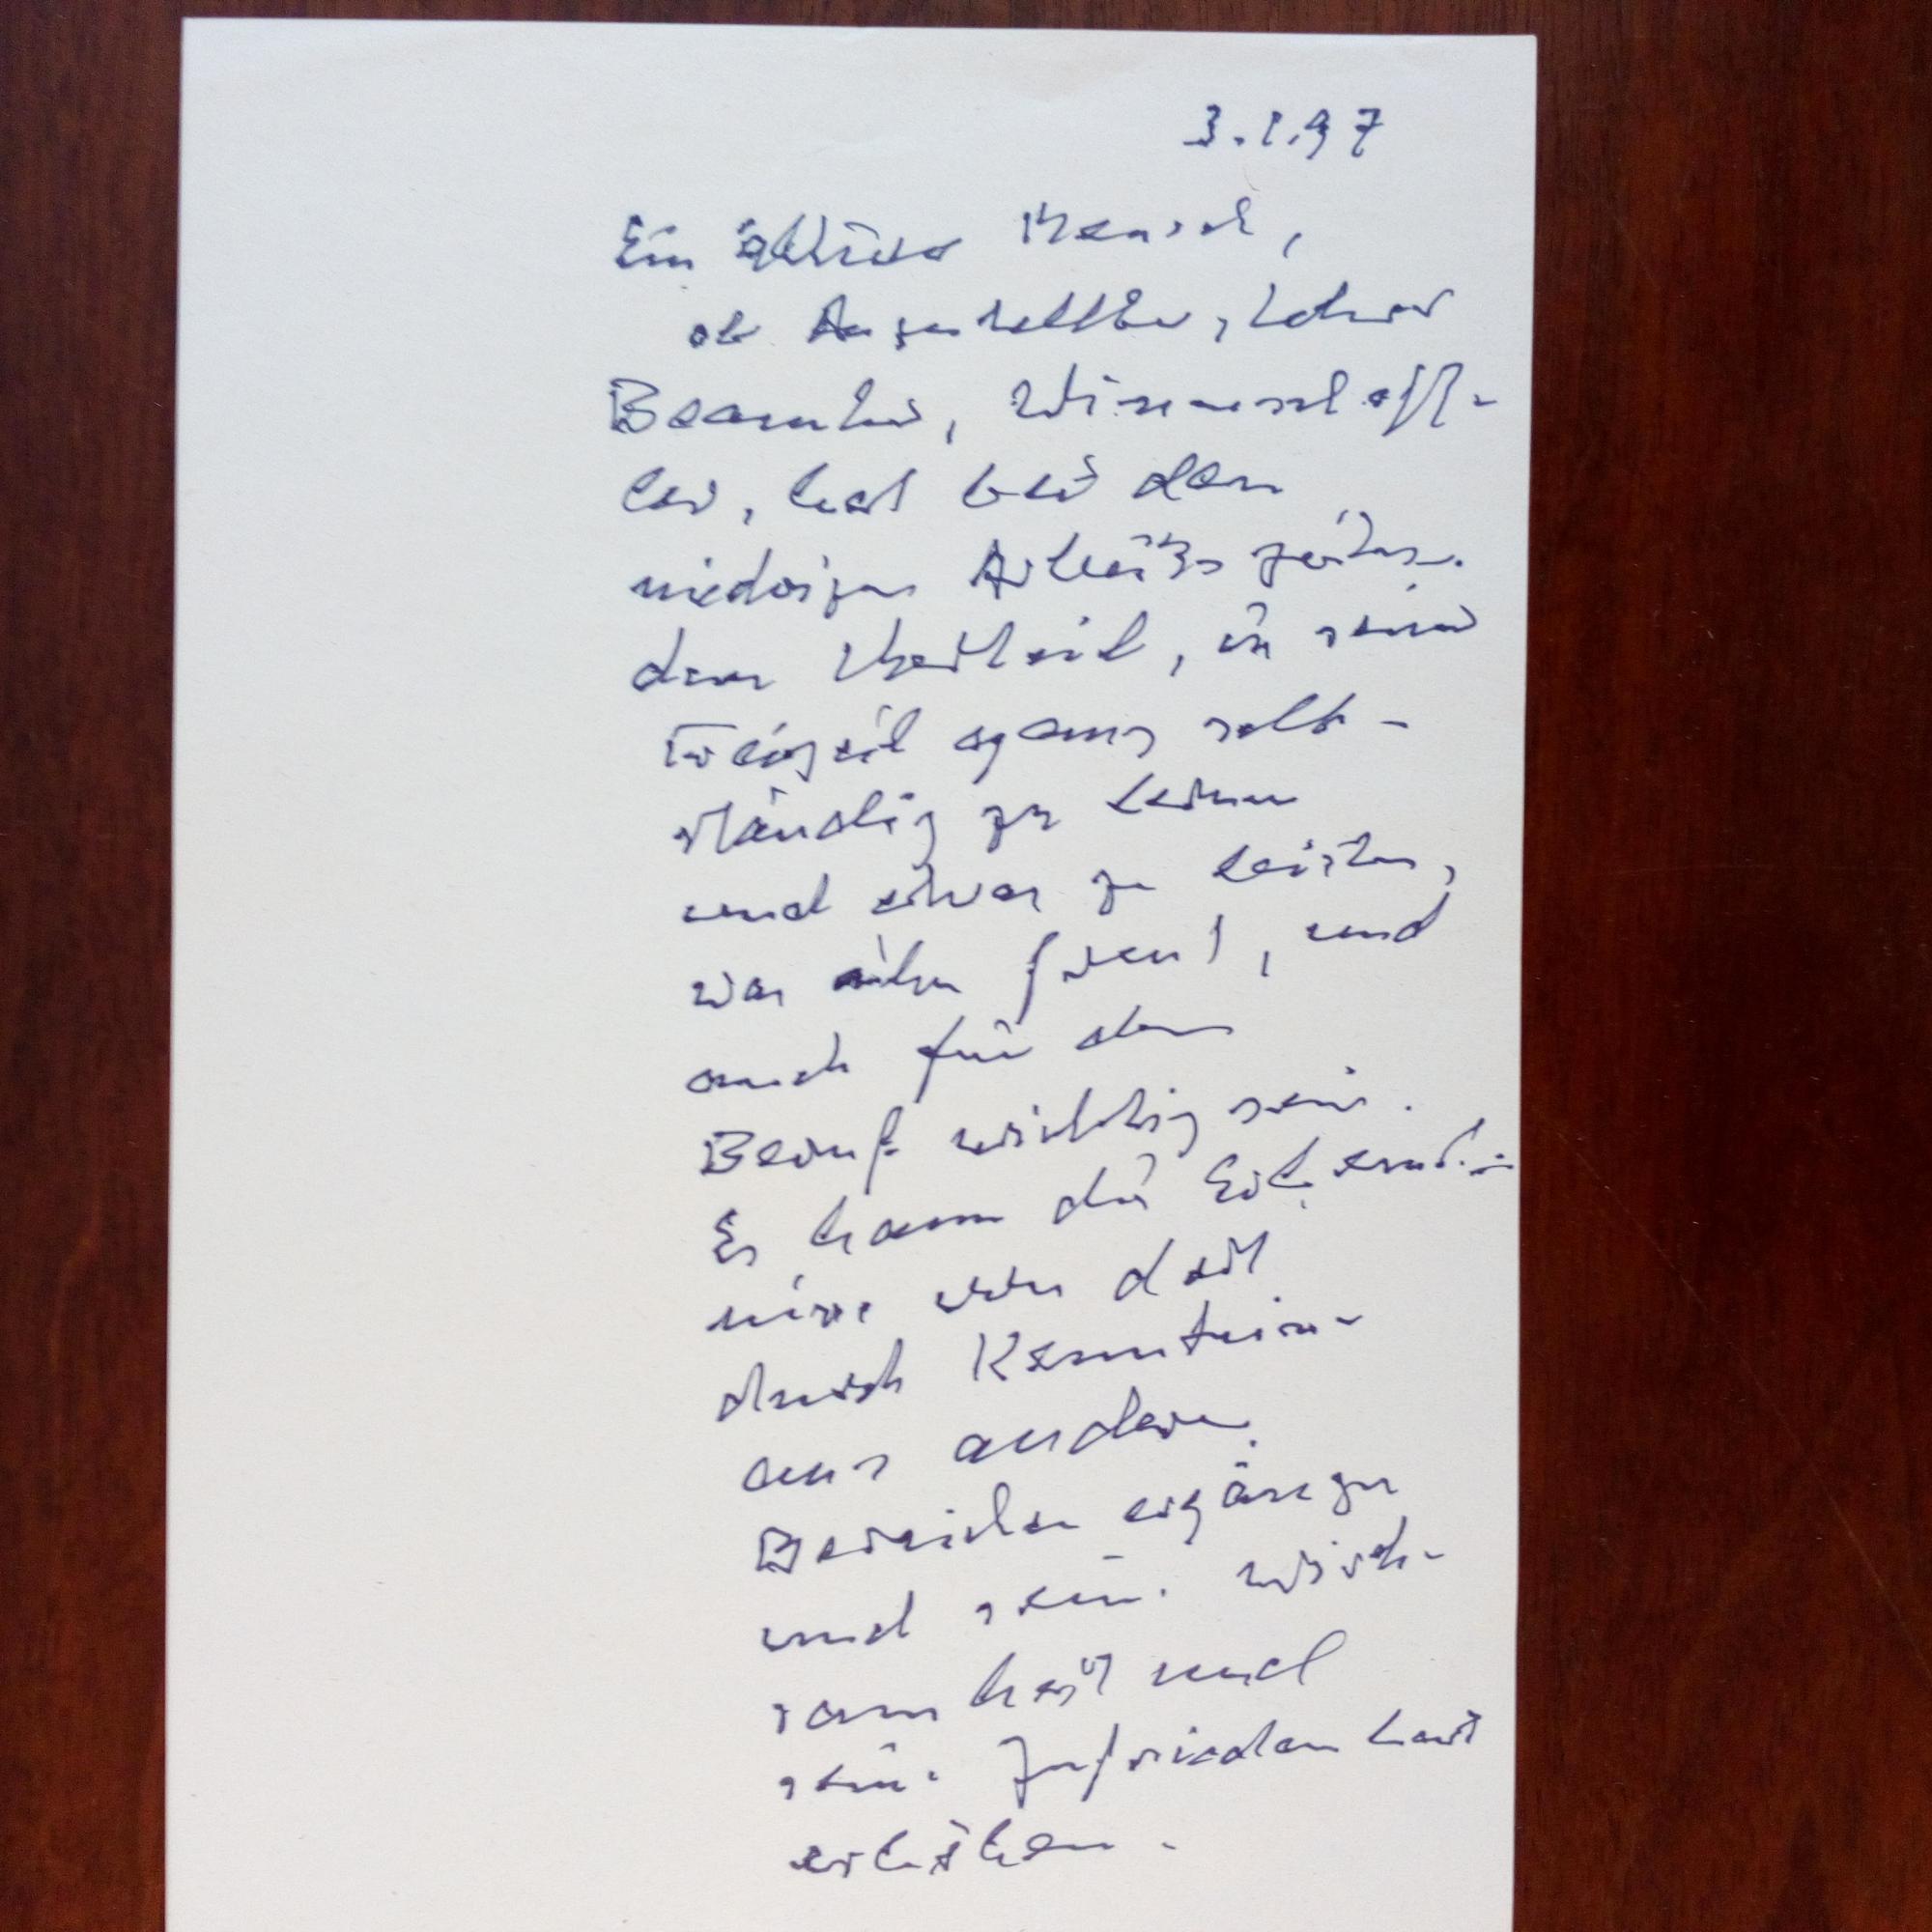 3.1.97
Ein aktiver Mensch,
ob Angestellter, Lehrer
Beamter, Wissenschaft-
ler, hat bei den
niedrigen Arbeitszeiten
den Vorteil, in seiner
Freizeit ganz selb-
ständig zu lernen
und etwas zu leisten,
was ihn freut, und
auch für den
Beruf wichtig sein.
Er kann die Erkennt-
nisse von dort
durch Kenntnisse
aus anderen
Bereichen ergänzen
und seine Wirk-
samkeit und
seine Zufriedenheit
erhöhen.